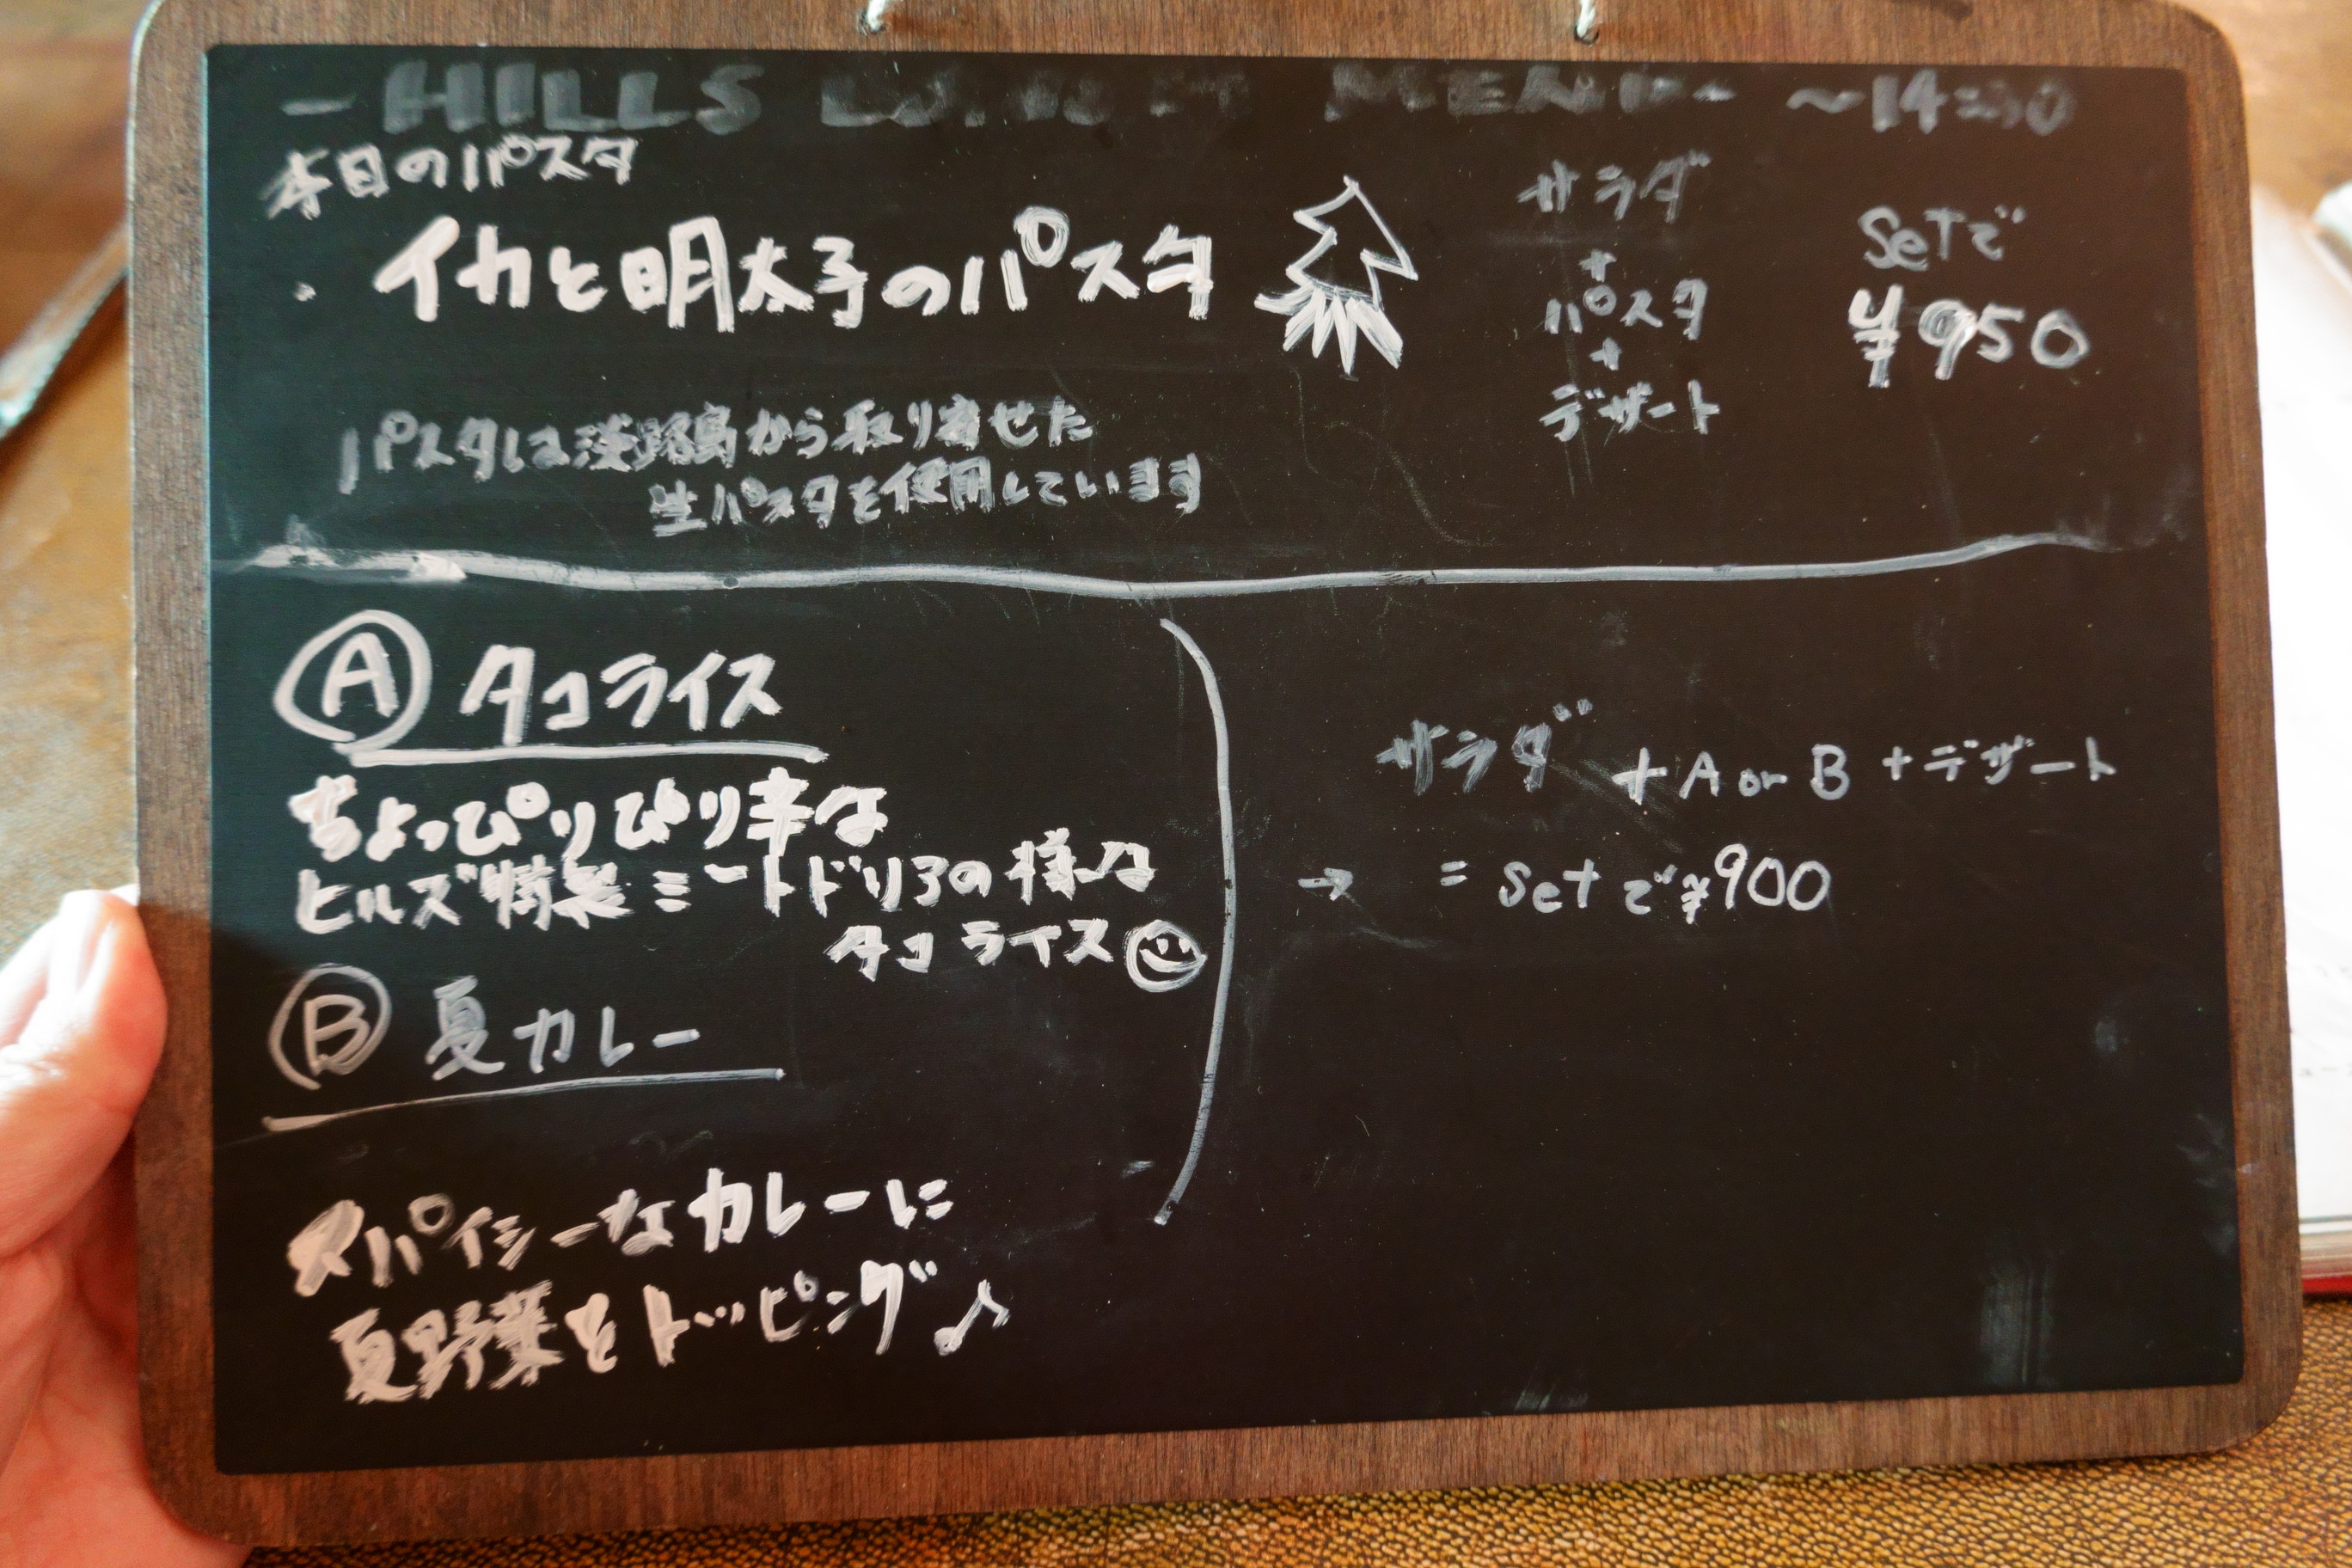 - HILLS LUNCH MENU - ～14:30
本日のパスタ
・イカと明太子のパスタ
パスタは淡路島から取り寄せた
生パスタを使用しています
サラダ
+
パスタ
+
デザート
Setで
¥950
Ⓐ タコライス
ちょっぴりぴり辛な
ヒルズ特製ミートドリアの様な
タコライス
Ⓑ 夏カレー
スパイシーなカレーに
夏野菜をトッピング♪
サラダ + A or B + デザート
→ = Setで¥900